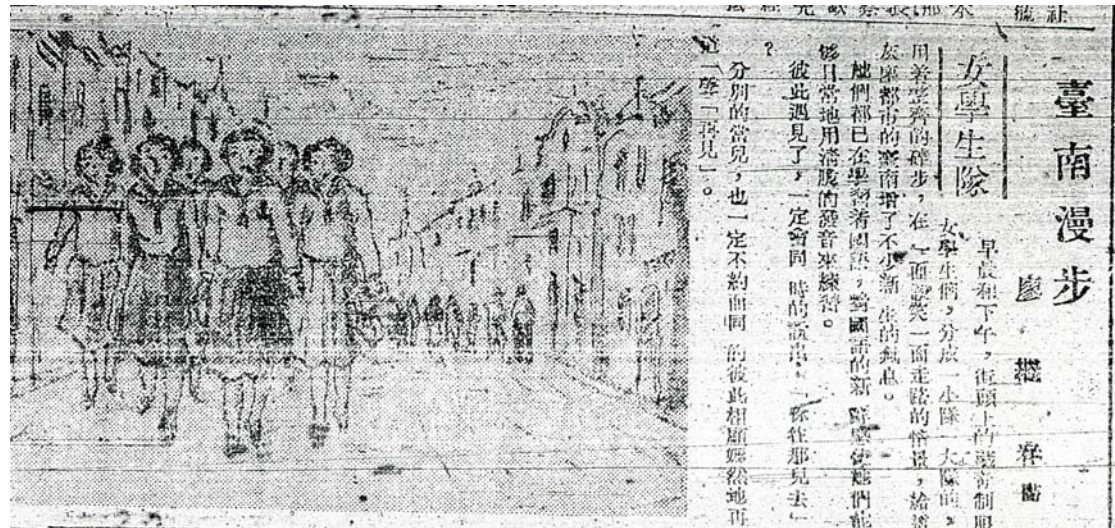 臺南漫步
廖繼春
女學生隊
早晨和下午,街頭上的穿着制服
女學生們,分成一小隊一大隊的,
用着整齊的碎步,在一面談笑一面走路的情景,給
灰塵都市的臺南增了不少新生的氣息。
她們都已在學習着國語,對國語的新 使她們能
够日常地用清脆的發音來練習。
彼此遇見了,一定會同時的說出:「你往那兒去」
?
分別的當兒,也一定不約而同的彼此相顧嫣然地再
道一聲「再見」。